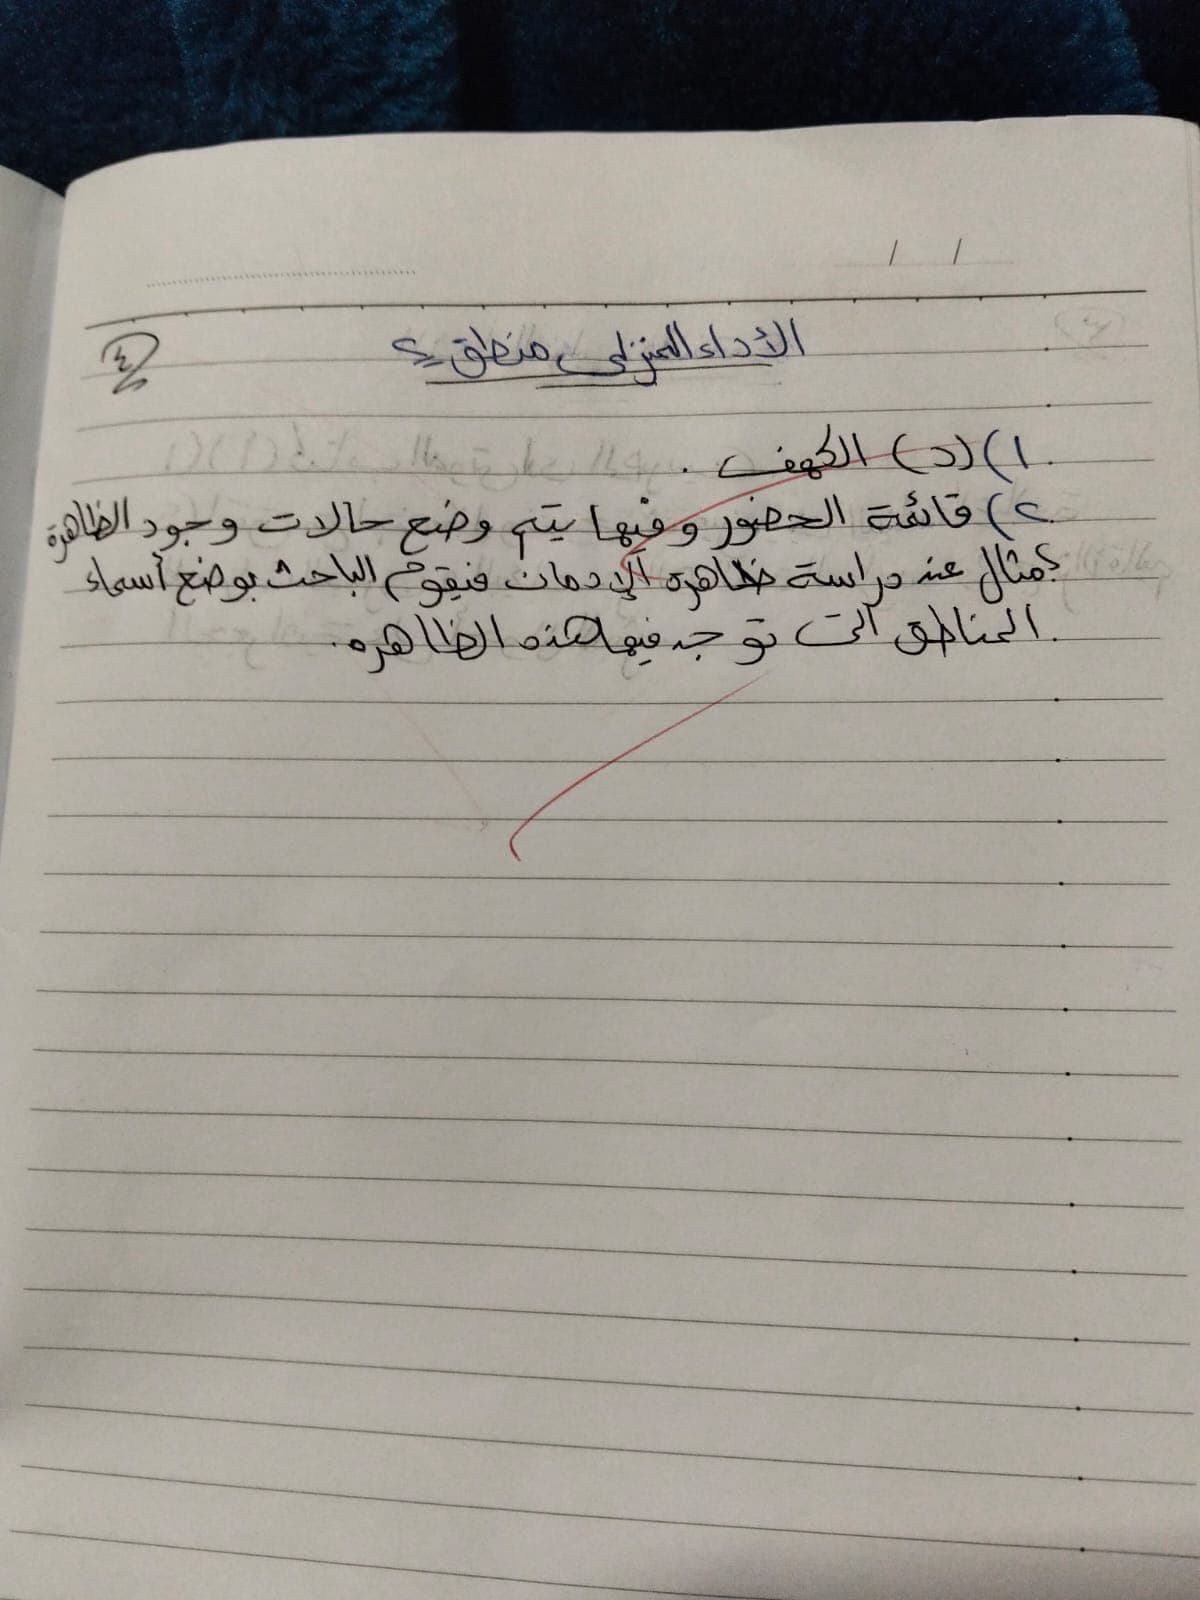 / /
الأداء المنزلى منطق ٢
٤
١) (د) الكهف .
٢) قائمة الحضور وفيها يتم وضع حالات وجود الظاهرة
؛ مثال عند دراسة ظاهرة الإدمان فيقوم الباحث بوضع أسماء
المناطق التى توجد فيها هذه الظاهره.